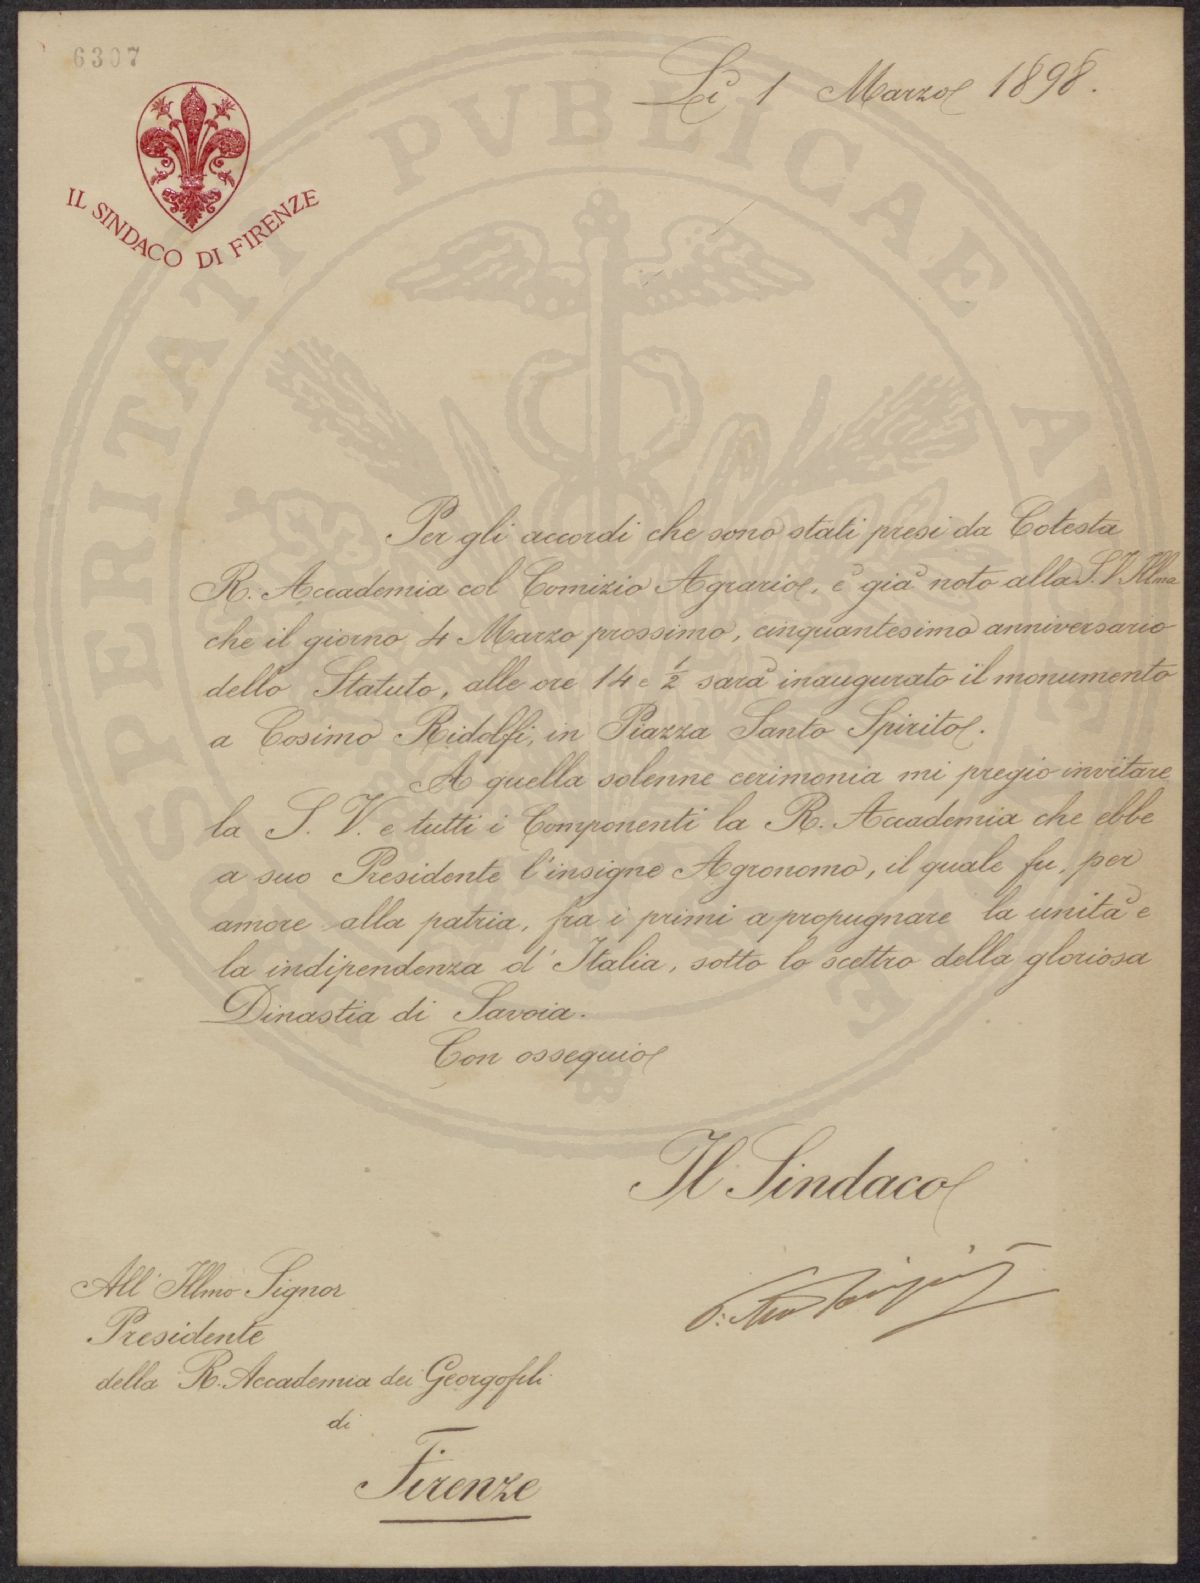 6307
IL SINDACO DI FIRENZE
Lì 1 Marzo 1898.
Per gli accordi che sono stati presi da Cotesta
R. Accademia col Comizio Agrario, è già noto alla S. V. Illma
che il giorno 4 Marzo prossimo, cinquantesimo anniversario
dello Statuto, alle ore 14 e 1/2 sarà inaugurato il monumento
a Cosimo Ridolfi, in Piazza Santo Spirito.
A quella solenne cerimonia mi pregio invitare
la S. V. e tutti i Componenti la R. Accademia che ebbe
a suo Presidente l'insigne Agronomo, il quale fu, per
amore alla patria, fra i primi a propugnare la unità e
la indipendenza d'Italia, sotto lo scettro della gloriosa
Dinastia di Savoia.
Con ossequio
Il Sindaco
All' Illmo Signor
Presidente
della R. Accademia dei Georgofili
di
Firenze
PROSPERITATI PVBLICAE AVGENDAE